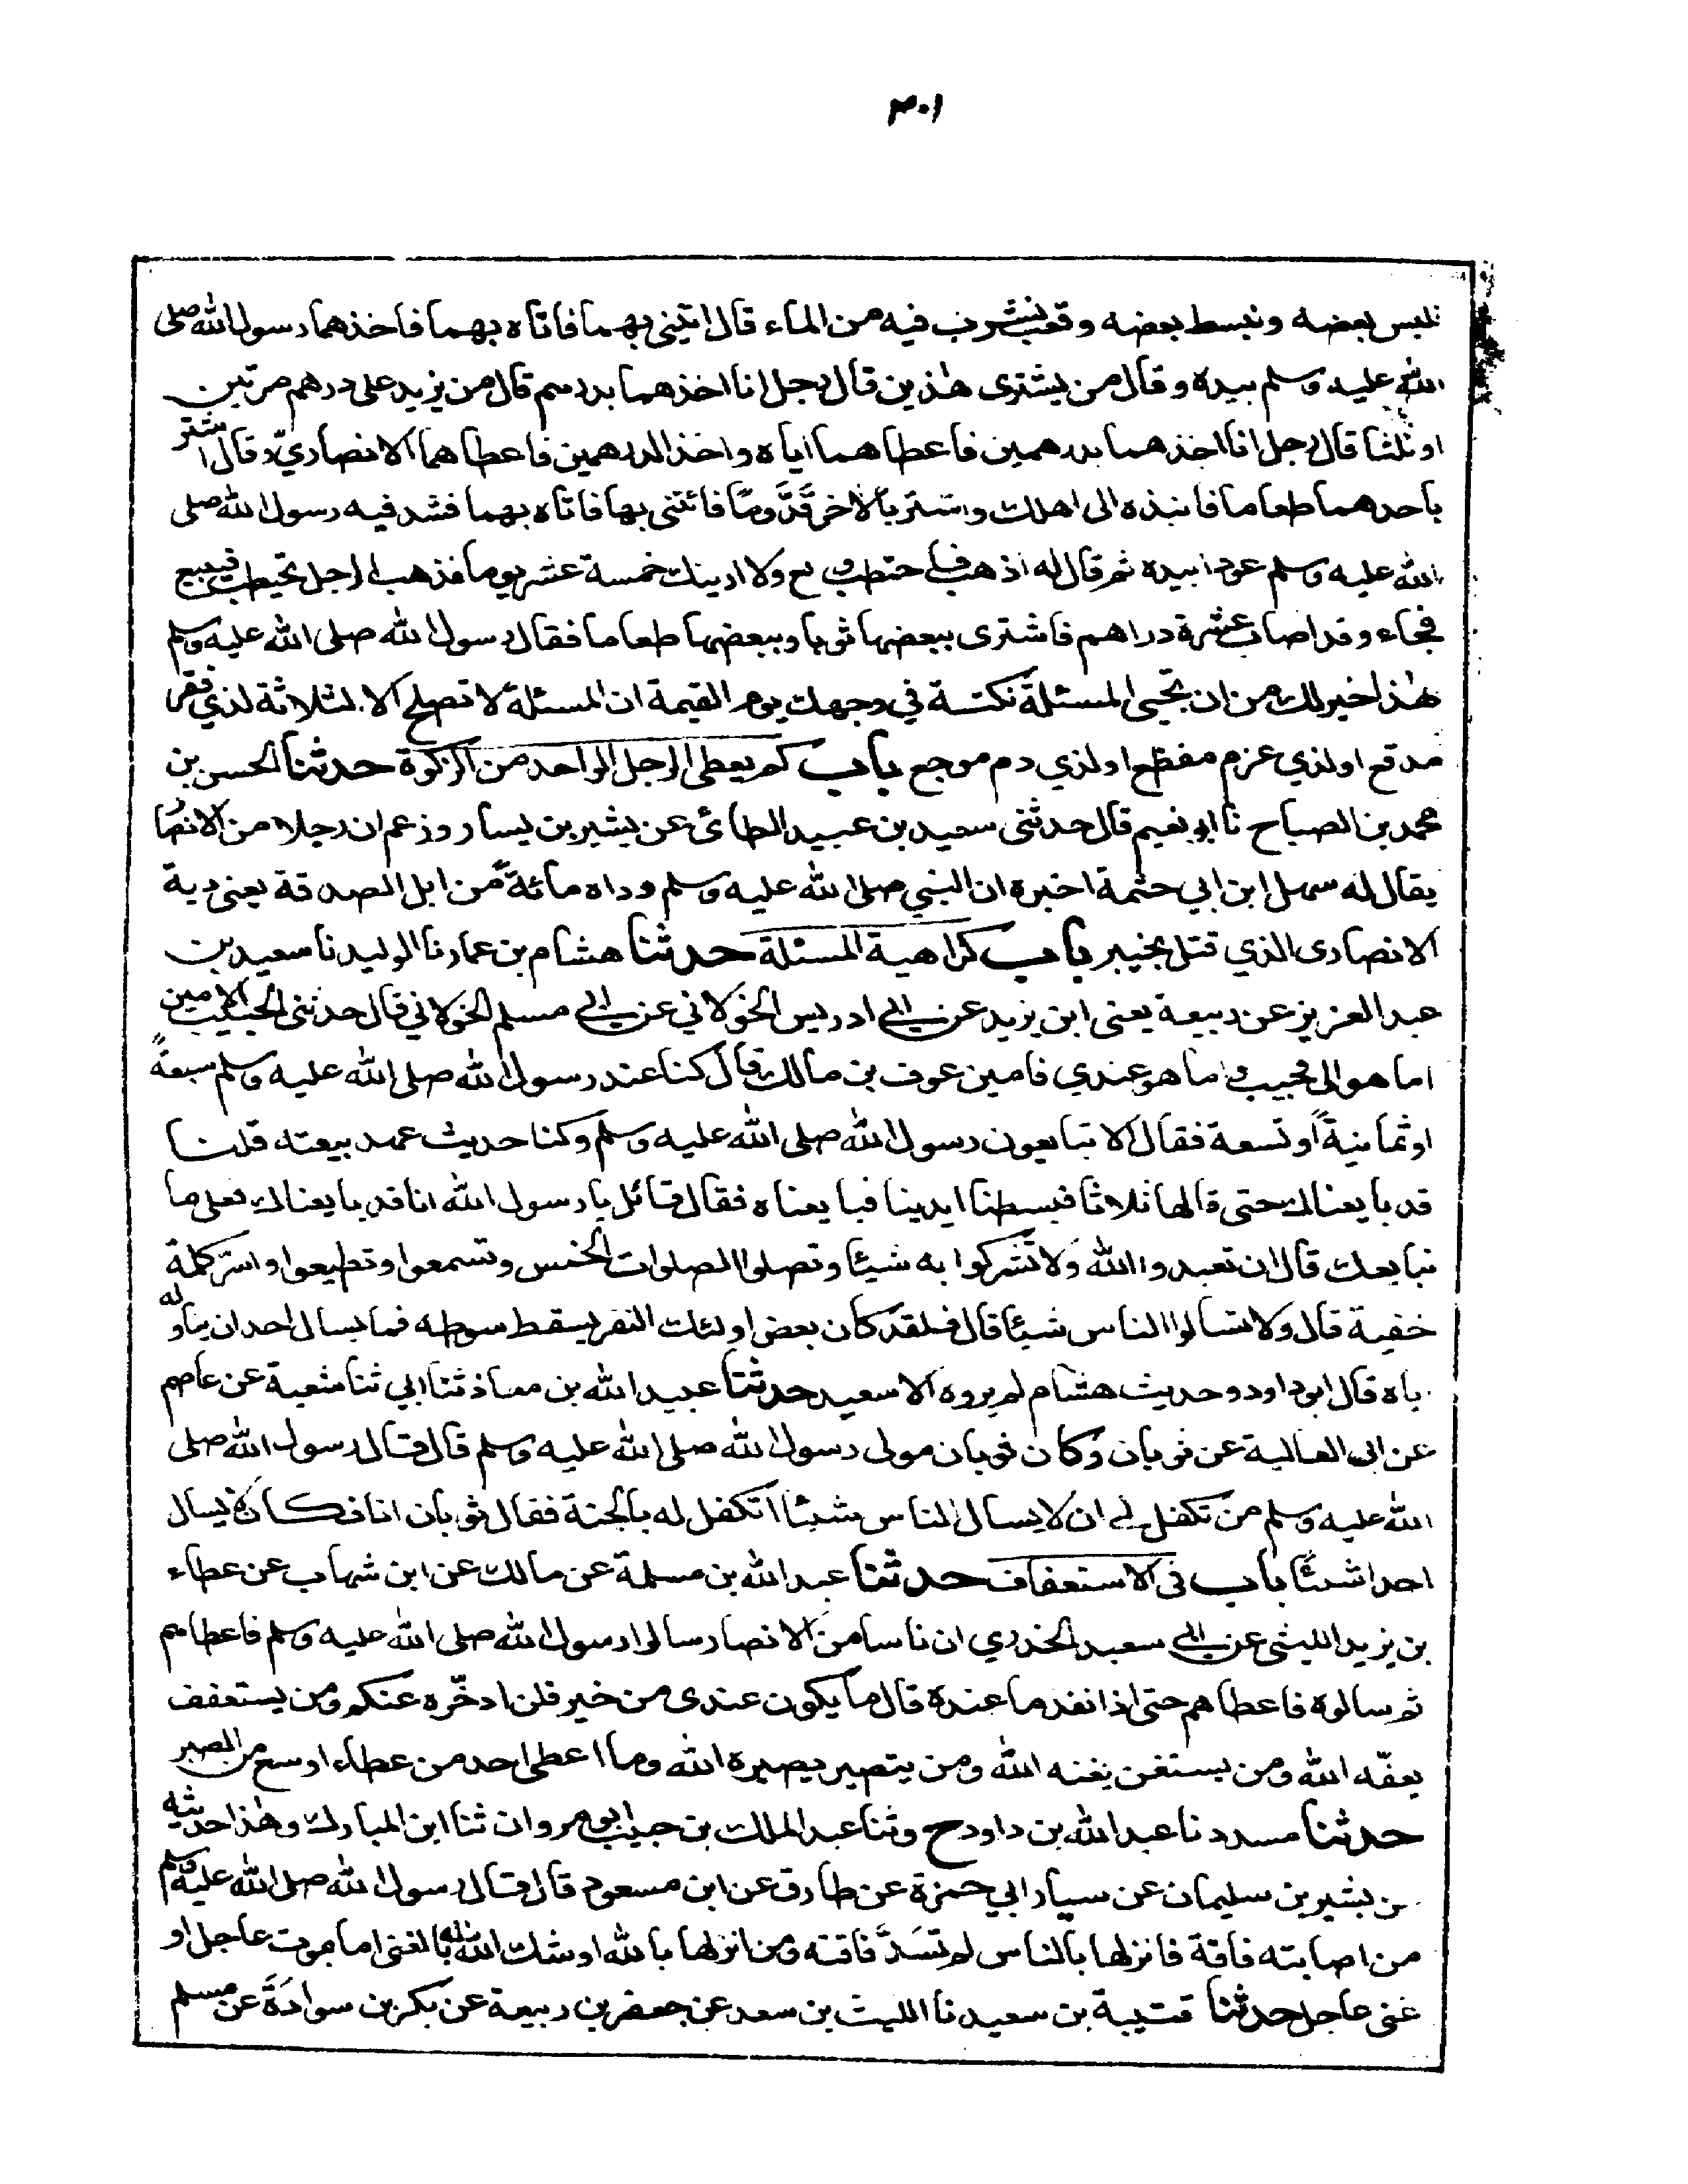 ٣٠١
نلبس بعضه ونبسط بعضه وقعب نشرب فيه من الماء قال ائتني بهما فاتاه بهما فاخذهما رسول الله صلى
الله عليه وسلم بيده وقال من يشترى هٰذين قال رجل انا اخذهما بدرهم قال من يزيد على درهم مرتين
او ثلثا قال رجل انا اخذهما بدرهمين فاعطاهما اياه واخذ الدرهمين فاعطاهما الانصاريّ وقال اشتر
باحدهما طعاما فانبذه الى اهلك واشتر بالاخر قَدَّومًا فائتنى بها فاتاه بهما فشد فيه رسول الله صلى
الله عليه وسلم عودا بيده ثم قال له اذهب فاحتطب وبع ولا ارينك خمسة عشر يوما فذهب الرجل يحتطب فيبيع
فجاء وقد اصاب عشرة دراهم فاشترى ببعضها ثوبا وببعضها طعاما فقال رسول الله صلى الله عليه وسلم
هٰذا خير لك من ان تجيى المسئلة نكتة في وجهك يوم القيمة ان المسئلة لا تصلح الا لثلاثة لذي فقر
مدقع او لذي غرم مفظع او لذي دم موجع باب كم يعطى الرجل الواحد من الزكوة حدثنا الحسن بن
محمد بن الصباح نا ابو نعيم قال حدثنى سعيد بن عبيد الطائى عن بشير بن يسار وزعم ان رجلا من الانصا
يقال له سهل ابن ابي حثمة اخبره ان النبي صلى الله عليه وسلم وداه مائة من ابل الصدقة يعنى دية
الانصارى الذي قتل بخيبر باب كراهية المسئلة حدثنا هشام بن عمار نا الوليد نا سعيد بن
عبد العزيز عن ربيعة يعنى ابن يزيد عن ابي ادريس الخولاني عن ابي مسلم الخولاني قال حدثنى الحبيب الامين
اما هو الى فحبيب واما هو عندي فامين عوف بن مالك قال كنا عند رسول الله صلى الله عليه وسلم سبعةً
او ثمانيةً او تسعة فقال الا تبايعون رسول الله صلى الله عليه وسلم وكنا حديث عهد ببيعته قلنا
قد بايعناك حتى قالها ثلاثا فبسطنا ايدينا فبايعناه فقال قائل يا رسول الله انا قد بايعناك فعلى ما
نبايعك قال ان تعبدوا الله ولا تشركوا به شيئا وتصلوا الصلوات الخمس وتسمعوا وتطيعوا واسر كلمة
خفية قال ولا تسالوا الناس شيئا قال فلقد كان بعض اولئك النفر يسقط سوطه فما يسال احدا ان يناوله
اياه قال ابو داود وحديث هشام لم يروه الا سعيد حدثنا عبيد الله بن معاذ ثنا ابي ثنا شعبة عن عاصم
عن ابى العالية عن ثوبان وكان ثوبان مولى رسول الله صلى الله عليه وسلم قال قال رسول الله صلى
الله عليه وسلم من تكفل لي ان لا يسال الناس شيئا اتكفل له بالجنة فقال ثوبان انا فكان لا يسال
احدا شيئًا باب فى الاستعفاف حدثنا عبد الله بن مسلمة عن مالك عن ابن شهاب عن عطاء
بن يزيد الليثى عن ابي سعيد الخدري ان ناسا من الانصار سالوا رسول الله صلى الله عليه وسلم فاعطاهم
ثم سالوه فاعطاهم حتى اذا نفد ما عنده قال ما يكون عندى من خير فلن ادخّره عنكم ومن يستعفف
يعفّه الله ومن يستغن يغنه الله ومن يتصبر يصبره الله وما اعطى احد من عطاء اوسع من الصبر
حدثنا مسدد نا عبد الله بن داود ح وثنا عبد الملك بن حبيب ابو مروان ثنا ابن المبارك وهٰذا حديثه
عن بشير بن سليمان عن سيار ابي حمزة عن طارق عن ابن مسعود قال قال رسول الله صلى الله عليه وسلم
من اصابته فاقة فانزلها بالناس لم تُسَدَّ فاقته ومن انزلها بالله اوشك الله له بالغنى اما بموت عاجل او
غنى عاجل حدثنا قتيبة بن سعيد نا الليث بن سعد عن جعفر بن ربيعة عن بكر بن سوادَةَ عن مسلم